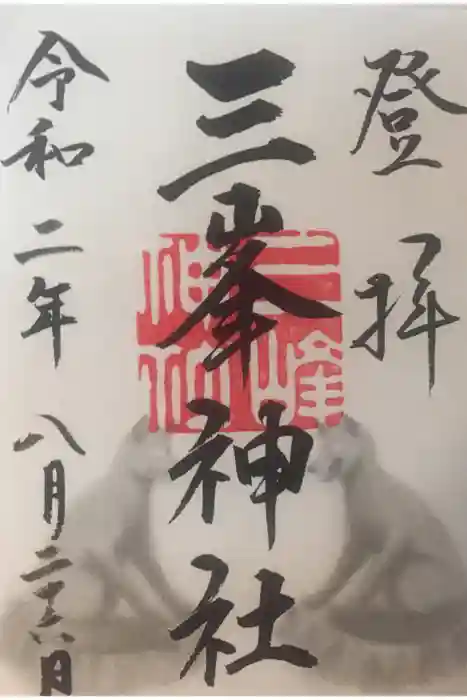 登拝
三峯神社
令和二年八月二十六日
三峰
神社